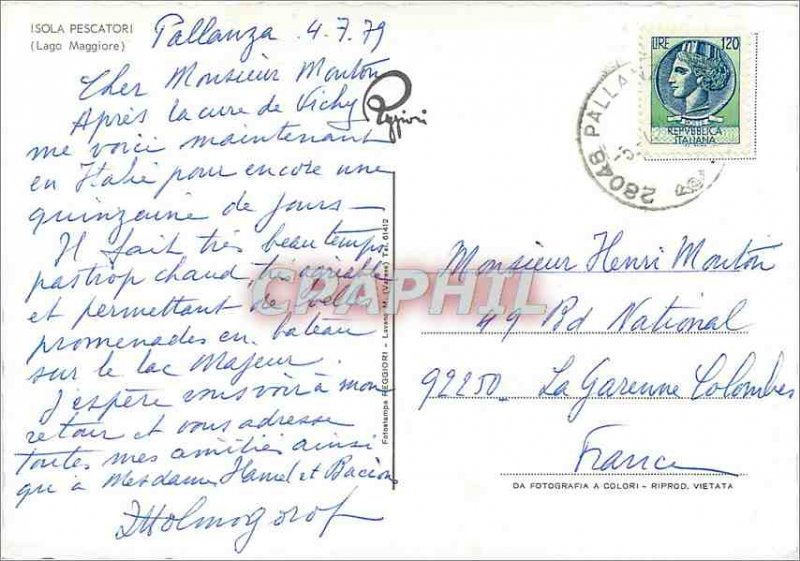 ISOLA PESCATORI
(Lago Maggiore)
Pallanza 4.7.79
Cher Monsieur Mouton
Après la cure de Vichy
me voici maintenant
en Italie pour encore une
quinzaine de jours —
Il fait très beau temps
pas trop chaud, très agréable
et permettant de belles
promenades en bateau
sur le lac Majeur.
J'espère vous voir à mon
retour et vous adresse
toutes mes amitiés ainsi
qu'à Mesdames Hamel et
Reggiori
Fotostampa REGGIORI - Laveno M. (Varese) Tel. 61412
CPAPHIL
LIRE 120
REPVBBLICA
ITALIANA
28048 PALLA
Monsieur Henri Mouton
49 Bd National
92250 - La Garenne Colombes
France
DA FOTOGRAFIA A COLORI - RIPROD. VIETATA